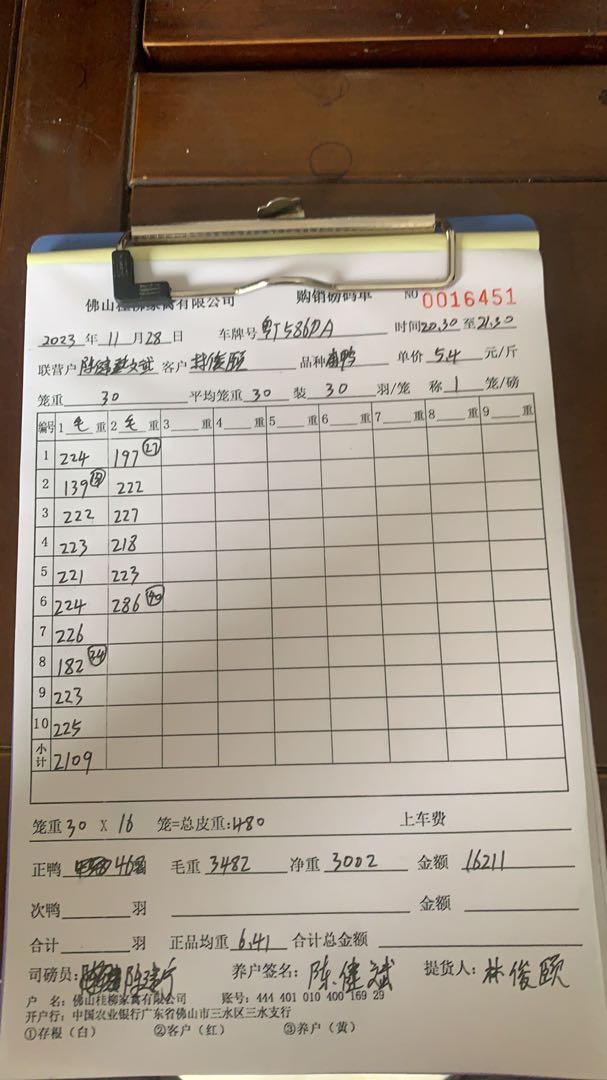 佛山桂柳家禽有限公司 购销磅码单 NO 0016451
2023 年 11 月 28 日 车牌号 时间 20.30 至 21.30
联营户 客户 林俊颐 品种 单价 5.4 元/斤
笼重 30 平均笼重 30 装 30 羽/笼 称 1 笼/磅
编号 1 毛 重 2 毛 重 3 重 4 重 5 重 6 重 7 重 8 重 9 重
1 224 197 27
2 139 222
3 222 227
4 223 218
5 221 223
6 224 286 40
7 226
8 182 24
9 223
10 225
小计 2109
笼重 30 X 16 笼=总皮重: 480 上车费
正鸭 毛重 3482 净重 3002 金额 16211
次鸭 羽 金额
合计 羽 正品均重 6.41 合计总金额
司磅员: 养户签名: 陈健斌 提货人: 林俊颐
户 名: 佛山桂柳家禽有限公司 账号: 444 401 010 400 169 29
开户行: 中国农业银行广东省佛山市三水区三水支行
①存根（白） ②客户（红） ③养户（黄）